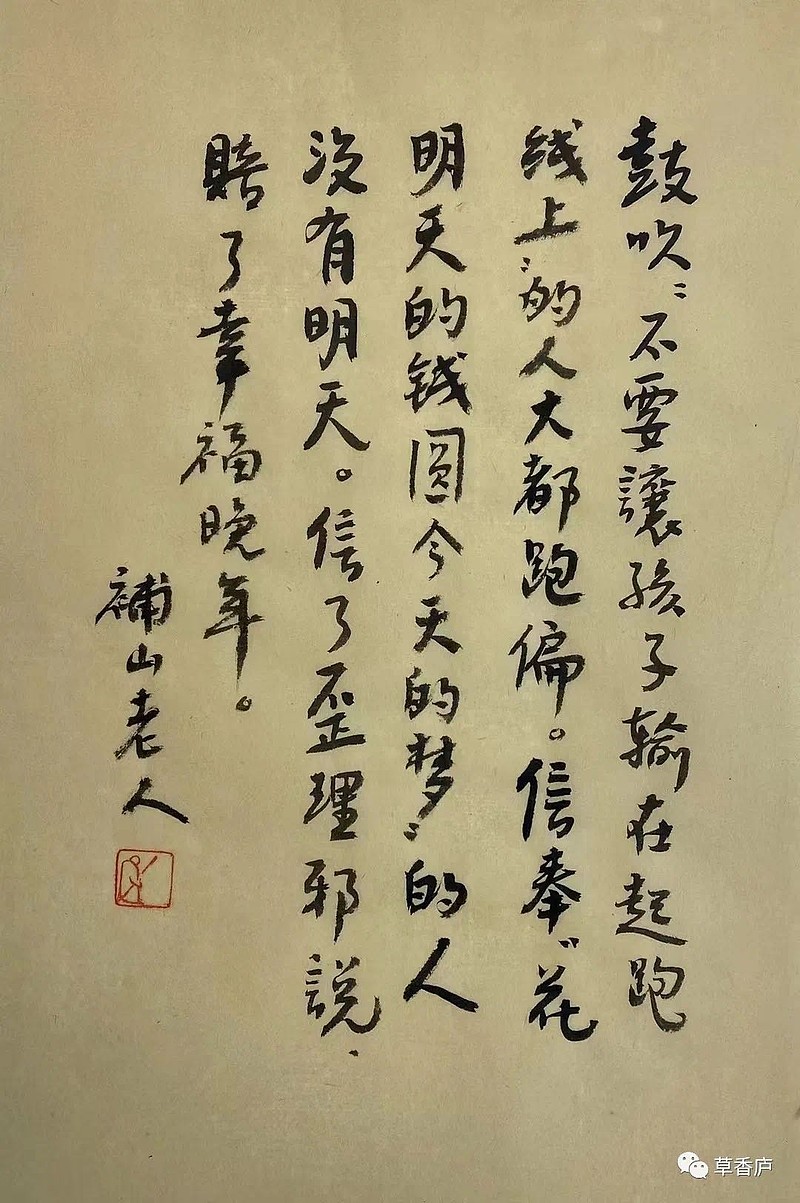 鼓吹“不要讓孩子输在起跑
线上”的人大都跑偏。信奉“花
明天的钱圆今天的梦”的人
没有明天。信了歪理邪説、
賠了幸福晚年。
補山老人
草香庐